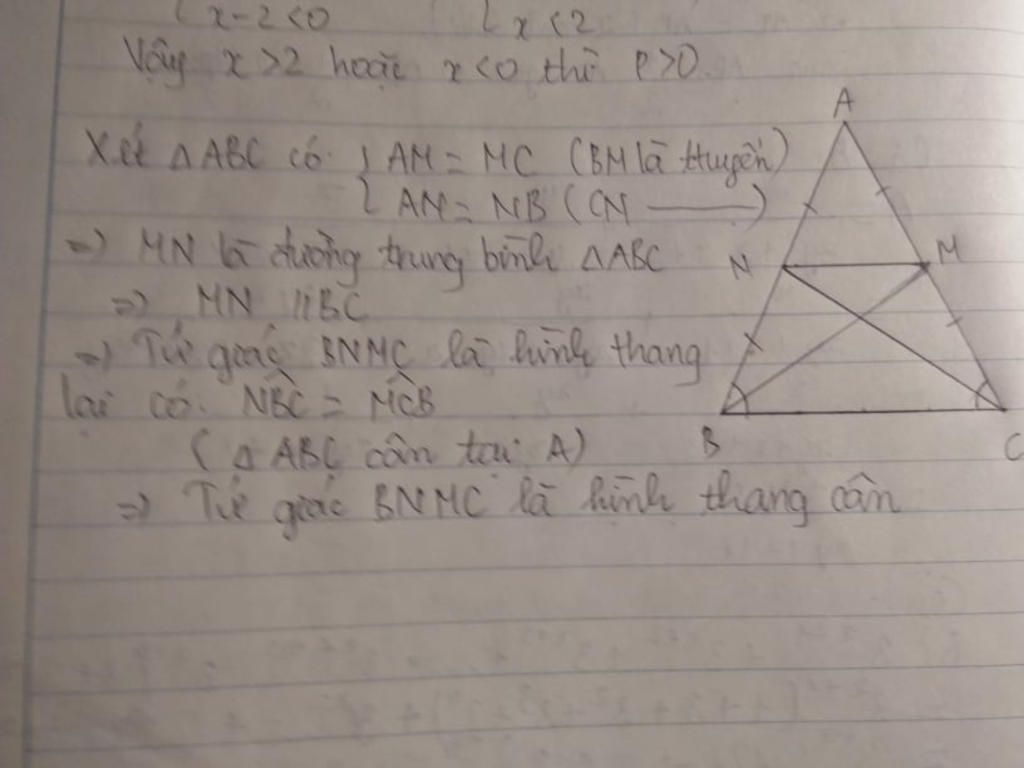 x-2<0 x<2
Vậy x>2 hoặc x<0 thì P>0.
Xét ΔABC có: { AM = MC (BM là tuyến)
AN = NB (CN ——)
=> MN là đường trung bình ΔABC
=> MN // BC
=> Tứ giác BNMC là hình thang
lại có: NBC = MCB
(ΔABC cân tại A)
=> Tứ giác BNMC là hình thang cân
A
N M
B C